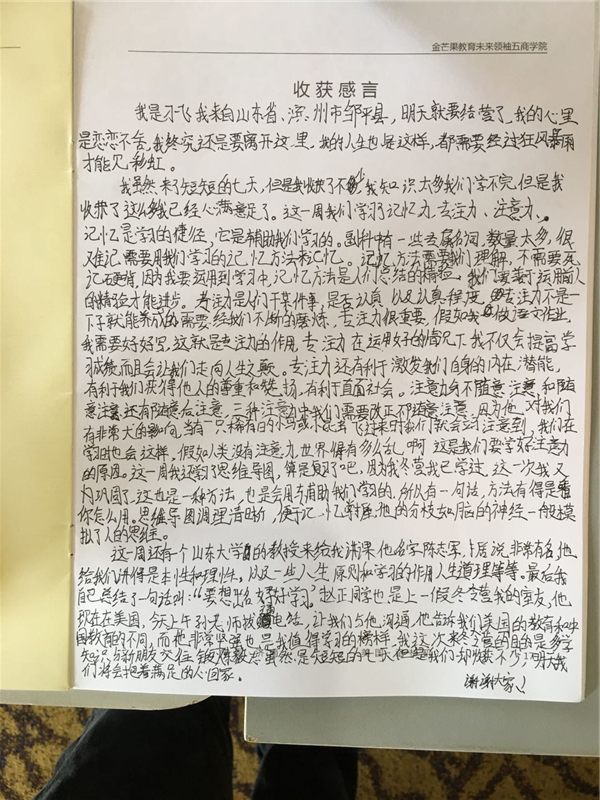 金芒果教育未来领袖五商学院
收获感言
我是 飞 我来自山东省、滨州市邹平县，明天就要结营了，我的心里
是恋恋不舍，我终究还是要离开这里，我的人生也是这样，都需要经过狂风暴雨
才能见彩虹。
我虽然来了短短的七天，但是我收获了不少，我知识太多我们学不完，但是我
收获了这么多我已经心满意足了。这一周我们学习了记忆力、专注力、注意力、
记忆是学习的捷径，它是辅助我们学习的。 科中有一些专属名词，数量太多，很
难记，需要用我们学习的记忆方法来记忆。记忆方法需要我们理解，不需要死
记硬背，因为我要运用到学习中，记忆方法是人们总结的精验，我们要善于运用人
的精验才能进步。专注力是人们干某件事，是否认真，以及认真程度，专注力不是一
下子就能养成的需要经我们不断的磨炼，专注力很重要，假如我 做语文作业，
我需要好好写，这就是专注力的作用，专注力在运用好的情况下，我不仅会提高学
习成绩，而且会让我们走向人生之巅。专注力还有利于激发我们自身的内在潜能，
有利于我们获得他人的尊重和赞扬，有利于直面社会。注意力分不随意注意和随
意注意，还有随意后注意，三种注意力中我们需要改正不随意注意，因为他 对我们
有非常大的影响，当有一只稀有的小鸟或小昆虫飞过来时我们就会 注意到，我们在
学时也会这样，假如人类没有注意力，世界得有多么乱 啊，这是我们要学好注意力
的原因。这一周我还学了思维导图，算是复习了吧，因为我冬营我已学过，这一次我又
巩固了，这也是一种方法，也是会用专辅助我们学习的，所以有一句话，方法有得是看
你怎么用。思维导图调理清晰，便于记忆 他的分枝如脑的神经一般，模
拟了人的思维。
这一周还有个山东大学的教授来给我讲课，他名字陈志军，听居说，非常有名，他
给我们讲得是本性和理性，以及一些人生原则和学习的作用人生道理等等。最后我
自己总结了一句话叫：“要想出名好好学习。”赵正同学也是上一假冬令营我的室友，他
现在在美国，今天上午孙老师拨通电话，让我们与他沟通，他告诉我们美国的教育和中
国教育的不同，而他非常坚强也是我值得学习的榜样，我这次来冬令营的目的是多学
知识，与新朋友交往，锻炼毅志，虽然是短短的七天，但是我们却收获不少，明天我
们将会抱着满足的心回家。
谢谢大家！